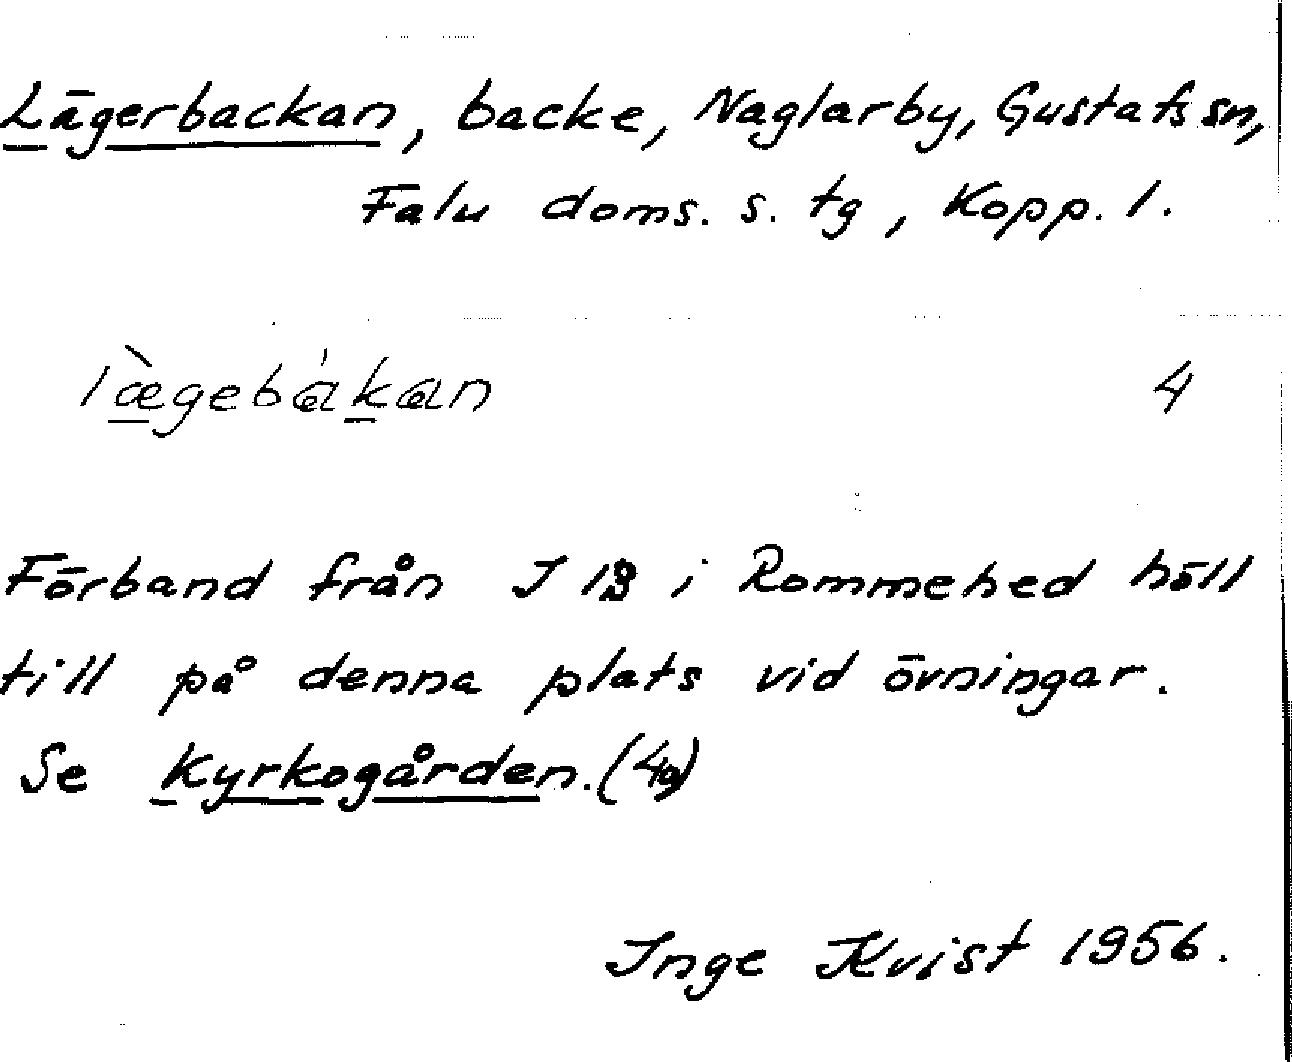 Lägerbackan, backe, Naglarby, Gustafs sn,
Falu doms. s. tg, Kopp. l.
læ̀gebákan 4
Förband från I 13 i Rommehed höll
till på denna plats vid övningar.
Se Kyrkogården. (4a)
Inge Kvist 1956.